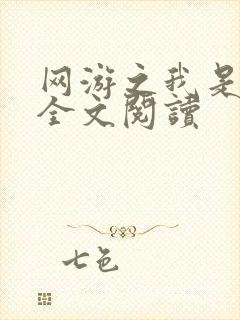 网游之我是
全文閱讀
七色